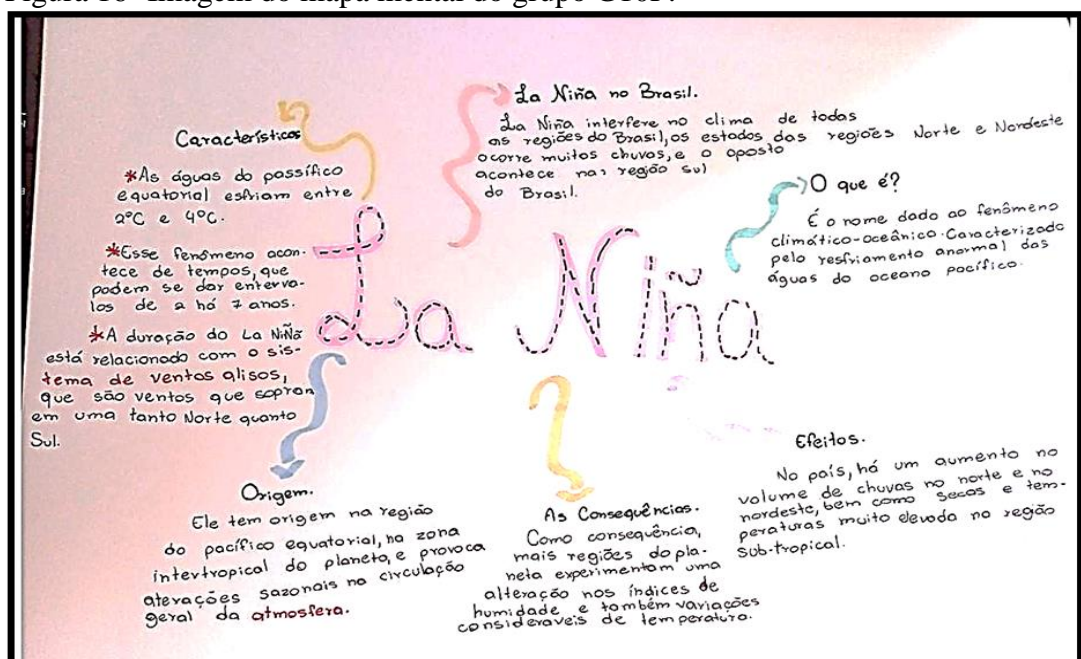 Figura 16- Imagem do mapa mental do grupo
La Niña
Característicos
*As águas do passífico
equatorial esfriam entre
2°C e 4°C.
*Esse fenômeno acon-
tece de tempos, que
podem se dar enterva-
los de 2 há 7 anos.
*A duração do La NiÑa
está relacionado com o sis-
tema de ventos alisos,
que são ventos que sopram
em uma tanto Norte quanto
Sul.
La Niña no Brasil.
La Niña interfere no clima de todas
as regiões do Brasil, os estados das regiões Norte e Nordeste
ocorre muitos chuvas, e o oposto
acontece nas região sul
do Brasil.
O que é?
É o nome dado ao fenômeno
climático-oceânico. Caracterizado
pelo resfriamento anormal das
águas do oceano pacífico.
Origem.
Ele tem origem na região
do pacífico equatorial, na zona
intertropical do planeta, e provoca
aterações sazonais na circulação
geral da atmosfera.
As Consequências.
Como consequência,
mais regiões do pla-
neta experimentam uma
alteração nos índices de
humidade e também variações
consideraveis de temperatura.
Efeitos.
No país, há um aumento no
volume de chuvas no norte e no
nordeste, bem como secas e tem-
peraturas muito elevada na região
sub-tropical.